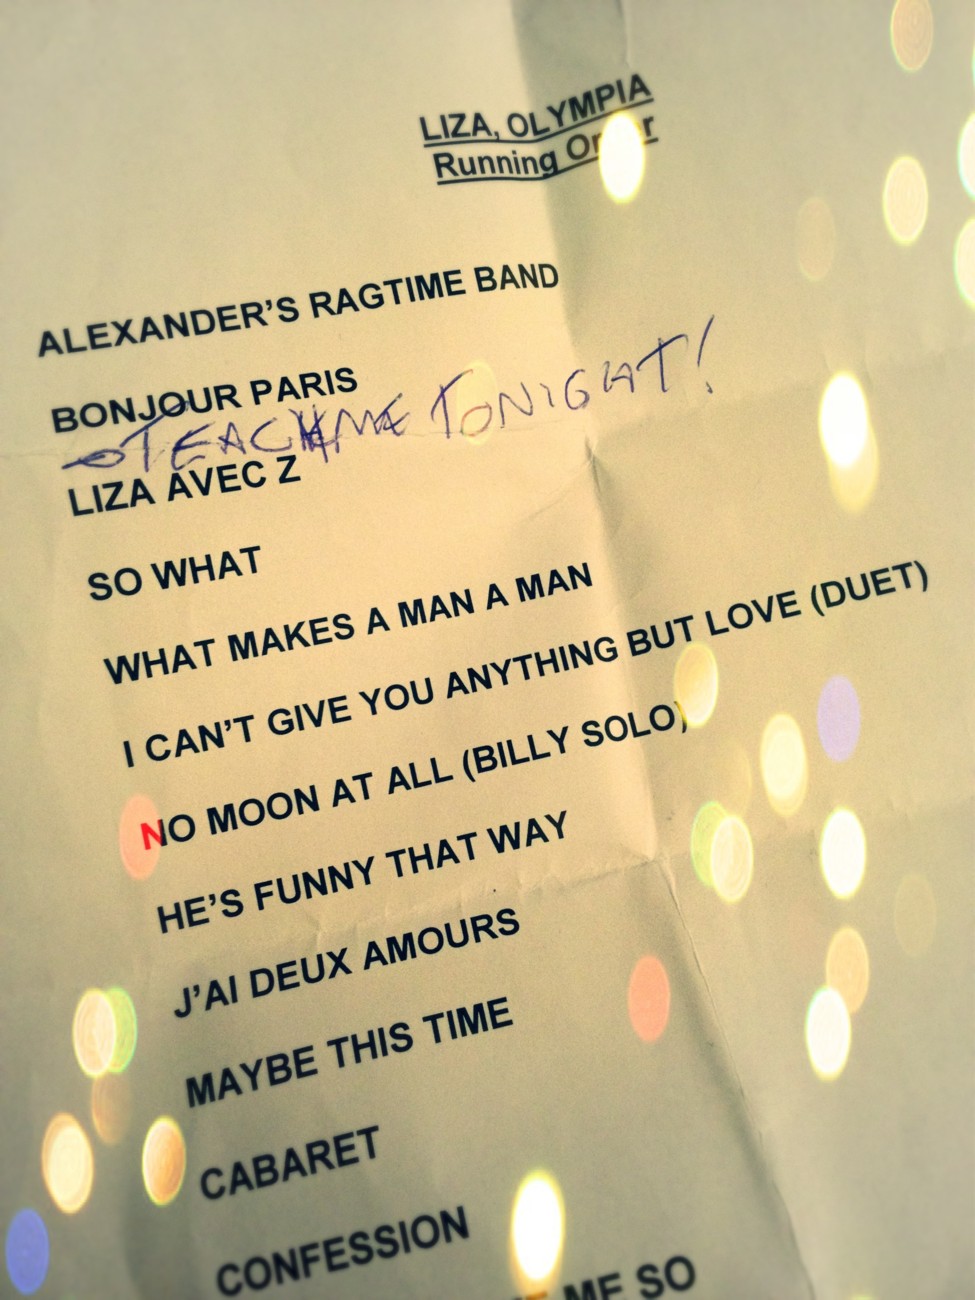 LIZA, OLYMPIA
Running
ALEXANDER'S RAGTIME BAND
BONJOUR PARIS
TEACH ME TONIGHT!
LIZA AVEC Z
SO WHAT
WHAT MAKES A MAN A MAN
I CAN'T GIVE YOU ANYTHING BUT LOVE (DUET)
NO MOON AT ALL (BILLY SOLO)
HE'S FUNNY THAT WAY
J'AI DEUX AMOURS
MAYBE THIS TIME
CABARET
CONFESSION
ME SO